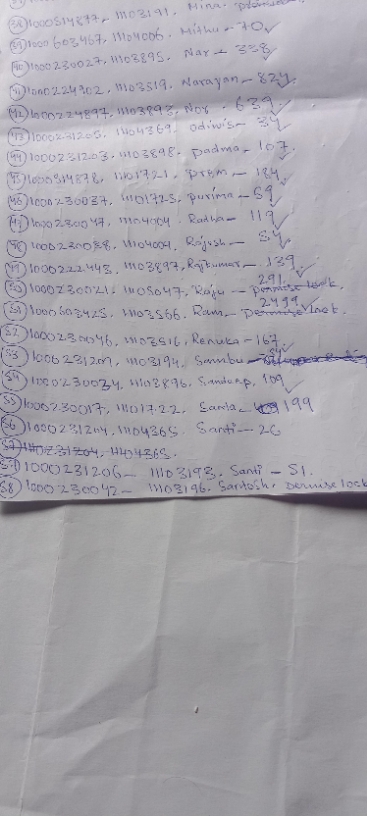 1000514877, 11103191. Mina.
(39) 1000603467, 11104006. Mithu - 70 ✓
(40) 1000230027, 11103895. Nar - 338
(41) 1000224902, 11103519. Narayan - 824 ✓
(42) 1000224897, 11103893, Nor - 639 ✓
(43) 1000231205. 11104369. odiwis - 34 ✓
(44) 1000231203, 11103898. padma - 107 ✓
(45) 1000514878, 11101721. prem - 184 ✓
(46) 1000230037, 11101725, purima - 59 ✓
(47) 1000230047, 11104004. Radha - 119 ✓
(48) 1000230038, 11104009. Rajush - 54 ✓
(49) 1000222448, 11103897, Rajkumar - 139 ✓
(50) 1000230021, 11105047, Raju - 291 ✓
(51) 1000603425, 11103566. Ram. 2499 ✓ lock.
(52) 1000230046, 1103516, Renuka - 167 ✓
(53) 1000231209, 11103194. Sambu -
(54) 1000230034, 11103896, Sandeep, 109 ✓
(55) 1000230017, 1101722. Sanla - 199
(56) 1000231204, 11104365. Santi - 26
(57) 1000231204, 11104365.
(57) 1000231206 - 11103193. Santi - 51.
(58) 1000230042 - 11103196. Santosh. Dermise lock